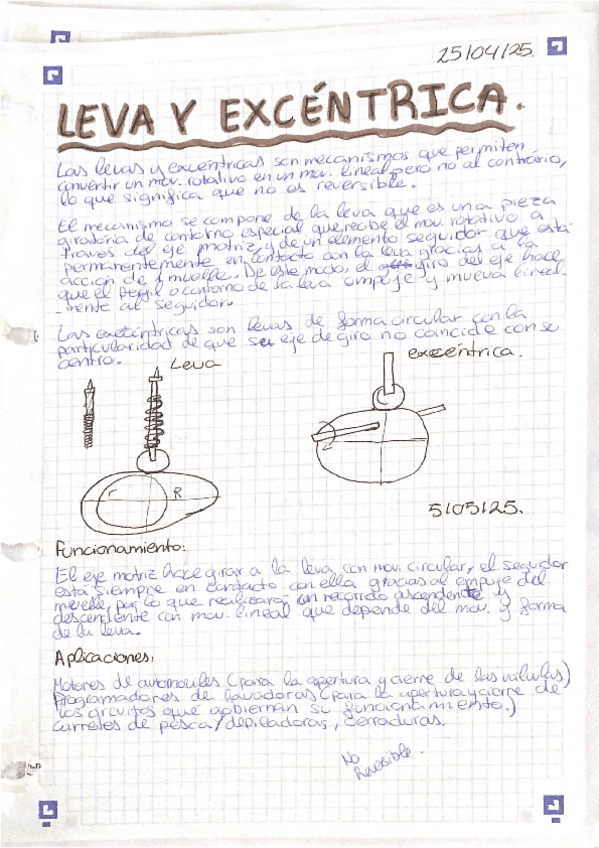 25/04/25.
LEVA Y EXCÉNTRICA.
Las levas y excéntricas son mecanismos que permiten
convertir un mov. rotativo en un mov. lineal pero no al contrário,
lo que significa que no es reversible.
El mecanismo se compone de la leva que es una pieza
giratoria de contorno especial que recibe el mov. rotativo a
través del eje motriz, y de un elemento seguidor que está
permanentemente en contacto con la leva gracias a la
acción de 1 muelle. De este modo, el giro del eje hace
que el perfil o contorno de la leva empuje y mueva lineal-
-mente al seguidor.
Las excéntricas son levas de forma circular con la
particularidad de que su eje de giro no coincide con su
centro.
Leva
excéntrica.
r
R
5/05/25.
Funcionamiento:
El eje motriz hace girar a la leva con mov. circular, el seguidor
está siempre en contacto con ella gracias al empuje del
muelle, por lo que realizará un recorrido ascendente y
descendente con mov. lineal que depende del mov. y forma
de la leva.
Aplicaciones:
Motores de automoviles (para la apertura y cierre de las valvulas)
Programadores de lavadoras (para la apertura y cierre de
los circuitos que gobiernan su funcionamiento.)
carretes de pesca/depiladoras, cerraduras.
No
Reversible.